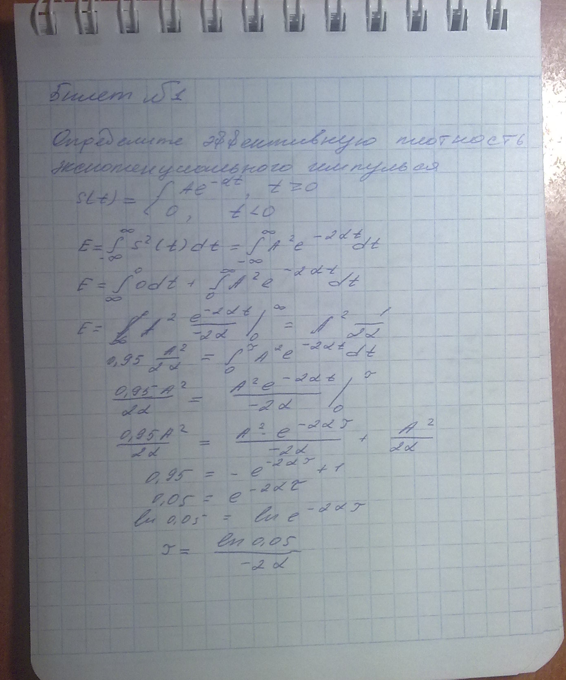 Билет №1
Определите эффективную плотность
экспоненциального импульса
S(t) = { Ae^{-αt}, t ≥ 0
0, t < 0
E = ∫_{-∞}^{∞} S²(t) dt = ∫_{-∞}^{∞} A² e^{-2αt} dt
E = ∫_{∞}^{0} 0dt + ∫_{0}^{∞} A² e^{-2αt} dt
E = A² e^{-2αt}/-2α |_{0}^{∞} = A² 1/2α
0,95 A²/2α = ∫_{0}^{τ} A² e^{-2αt} dt
0,95A²/2α = A² e^{-2αt}/-2α |_{0}^{τ}
0,95A²/2α = A² · e^{-2ατ}/-2α + A²/2α
0,95 = - e^{-2ατ} + 1
0,05 = e^{-2ατ}
ln 0,05 = ln e^{-2ατ}
τ = ln 0,05/-2α